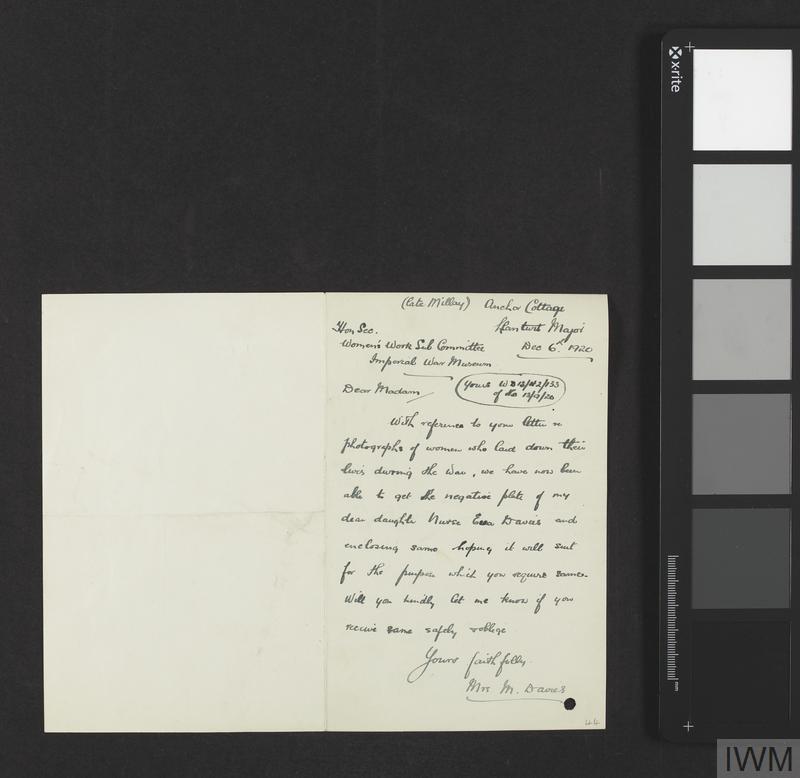 (late Millay) Anchor Cottage
Llantwit Major
Dec 6th 1920
Hon Sec.
Women's Work Sub Committee
Imperial War Museum
Dear Madam
Yours
of the 13/9/20
With reference to your letter re
photographs of women who laid down their
lives during the War, we have now been
able to get the negative plate of my
dear daughter Nurse Eva Davies and
enclosing same hoping it will suit
for the purpose which you require same.
Will you kindly let me know if you
receive same safely & oblige
Yours faithfully.
Mrs. M. Davies
44
x-rite
mm
IWM